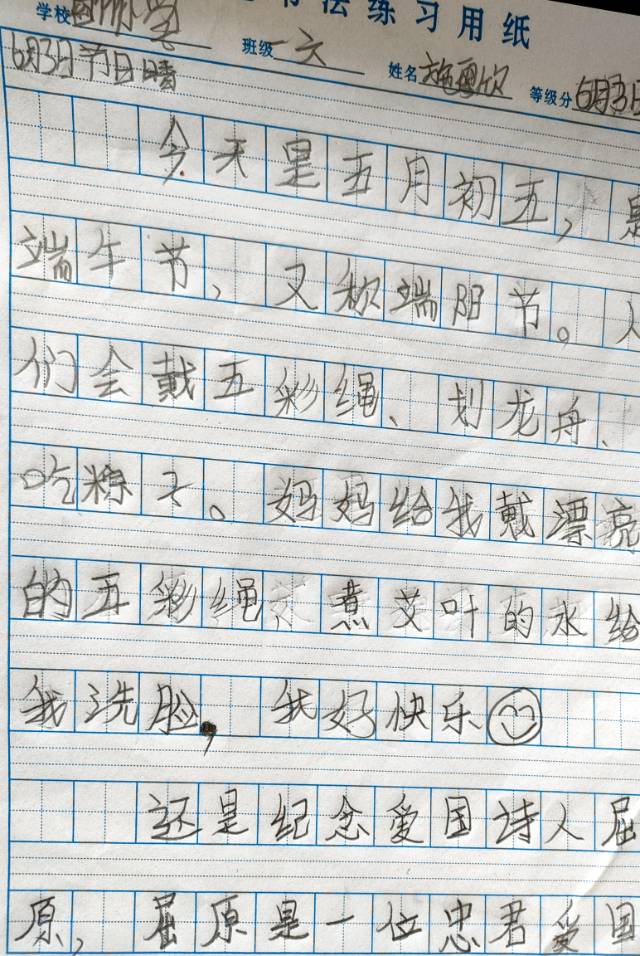 书法练习用纸
学校 班级一六 姓名 等级分6月3日
6月3日节日晴
今天是五月初五,是
端午节,又称端阳节。人
们会戴五彩绳、划龙舟、
吃粽子。妈妈给我戴漂亮
的五彩绳,煮艾叶的水给
我洗脸,我好快乐
还是纪念爱国诗人屈
原,屈原是一位忠君爱国